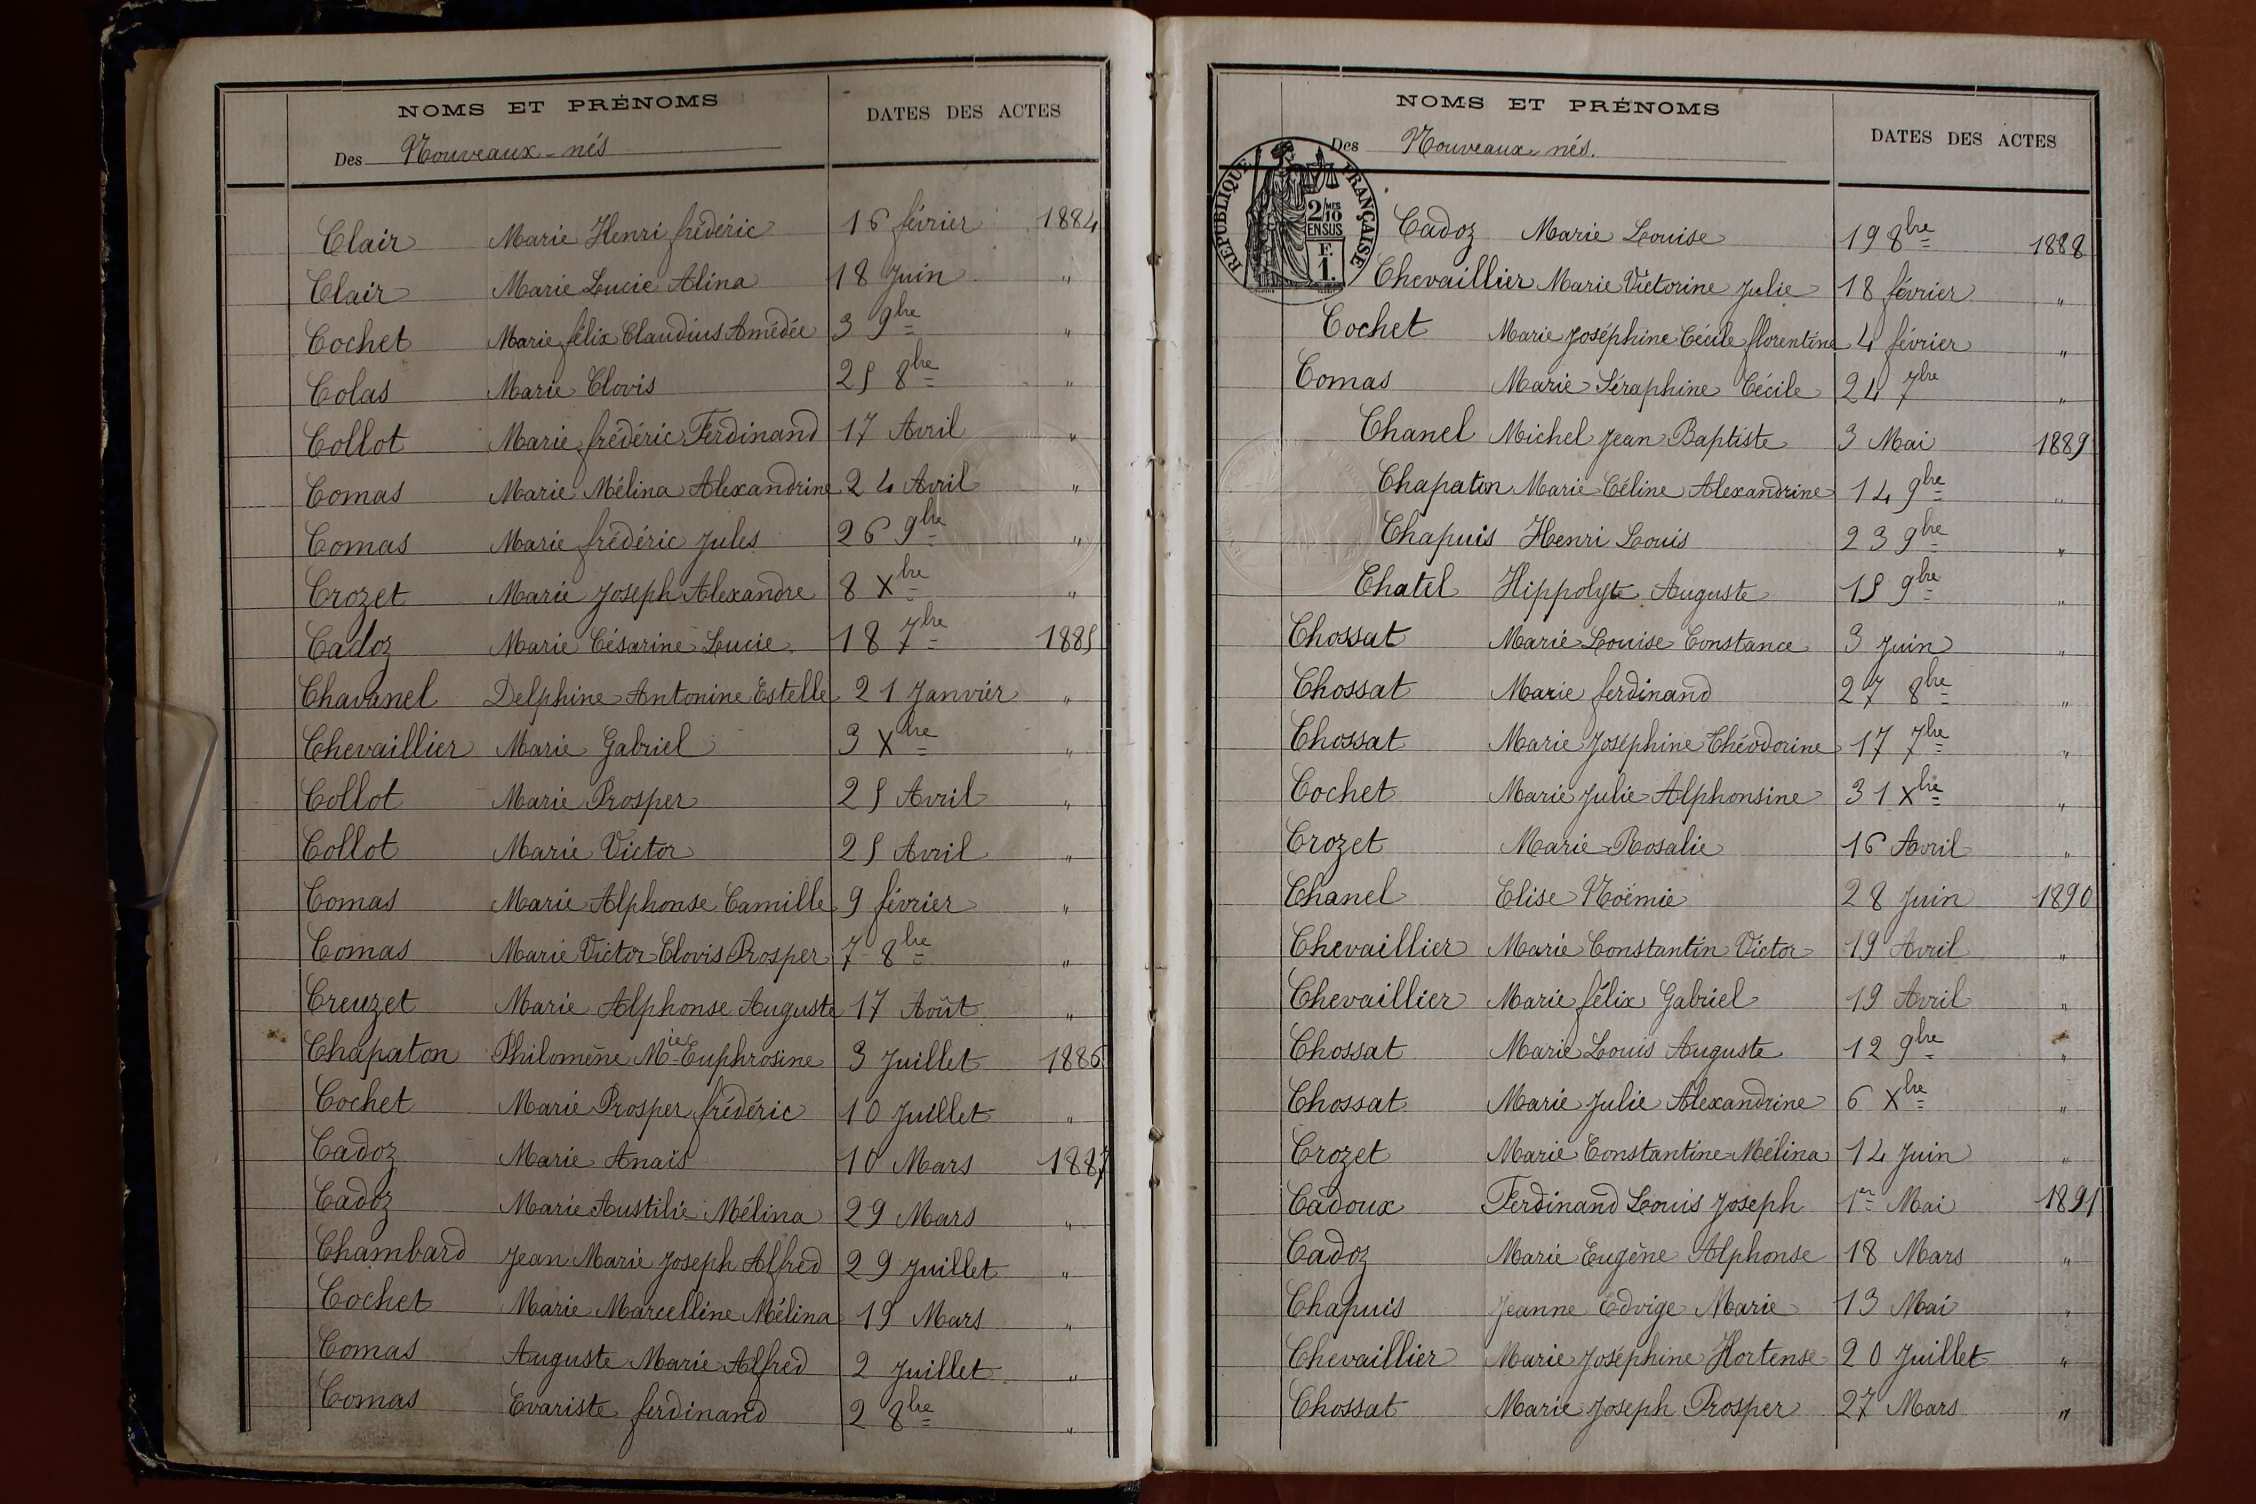 NOMS ET PRÉNOMS
DATES DES ACTES
Des Nouveaux-nés
Clair Marie Henri frédéric 16 février 1884
Clair Marie Lucie Alina 18 Juin "
Cochet Marie félix Claudius Amédée 3 9bre "
Colas Marie Clovis 25 8bre "
Collot Marie frédéric Ferdinand 17 Avril "
Comas Marie Mélina Alexandrine 24 Avril "
Comas Marie frédéric Jules 26 9bre "
Crozet Marie Joseph Alexandre 8 Xbre "
Cadoz Marie Césarine Lucie 18 7bre 1885
Chavanel Delphine Antonine Estelle 21 Janvier "
Chevaillier Marie Gabriel 3 Xbre "
Collot Marie Prosper 25 Avril "
Collot Marie Victor 25 Avril "
Comas Marie Alphonse Camille 9 février "
Comas Marie Victor Clovis Prosper 7 8bre "
Creuzet Marie Alphonse Auguste 17 Août "
Chapaton Philomène Mie Euphrosine 3 Juillet 1886
Cochet Marie Prosper frédéric 10 Juillet "
Cadoz Marie Anais 10 Mars 1887
Cadoz Marie Austilie Mélina 29 Mars "
Chambard Jean Marie Joseph Alfred 29 Juillet "
Cochet Marie Marcelline Mélina 19 Mars "
Comas Auguste Marie Alfred 2 Juillet "
Comas Evariste ferdinand 2 8bre "
NOMS ET PRÉNOMS
DATES DES ACTES
Des Nouveaux-nés.
RÉPUBLIQUE FRANÇAISE
2/10MES
EN SUS
F.
1.
Cadoz Marie Louise 19 8bre 1888
Chevaillier Marie Victorine Julie 18 février "
Cochet Marie Joséphine Cécile florentine 4 février "
Comas Marie Séraphine Cécile 24 7bre "
Chanel Michel Jean Baptiste 3 Mai 1889
Chapaton Marie Céline Alexandrine 14 9bre "
Chapuis Henri Louis 23 9bre "
Chatel Hippolyte Auguste 15 9bre "
Chossat Marie Louise Constance 3 Juin "
Chossat Marie ferdinand 27 8bre "
Chossat Marie Joséphine Théodorine 17 7bre "
Cochet Marie Julie Alphonsine 31 Xbre "
Crozet Marie Rosalie 16 Avril "
Chanel Elise Noémie 28 Juin 1890
Chevaillier Marie Constantin Victor 19 Avril "
Chevaillier Marie félix Gabriel 19 Avril "
Chossat Marie Louis Auguste 12 9bre "
Chossat Marie Julie Alexandrine 6 Xbre "
Crozet Marie Constantine Mélina 14 Juin "
Cadoux Ferdinand Louis Joseph 1er Mai 1891
Cadoz Marie Eugène Alphonse 18 Mars "
Chapuis Jeanne Edvige Marie 13 Mai "
Chevaillier Marie Joséphine Hortense 20 Juillet "
Chossat Marie Joseph Prosper 27 Mars "